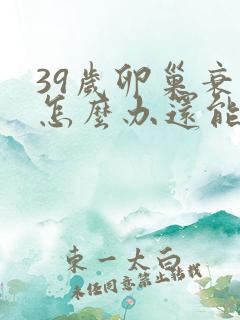 39歲卵巢衰
怎麼办還能
東一太白
未经同意禁止转载